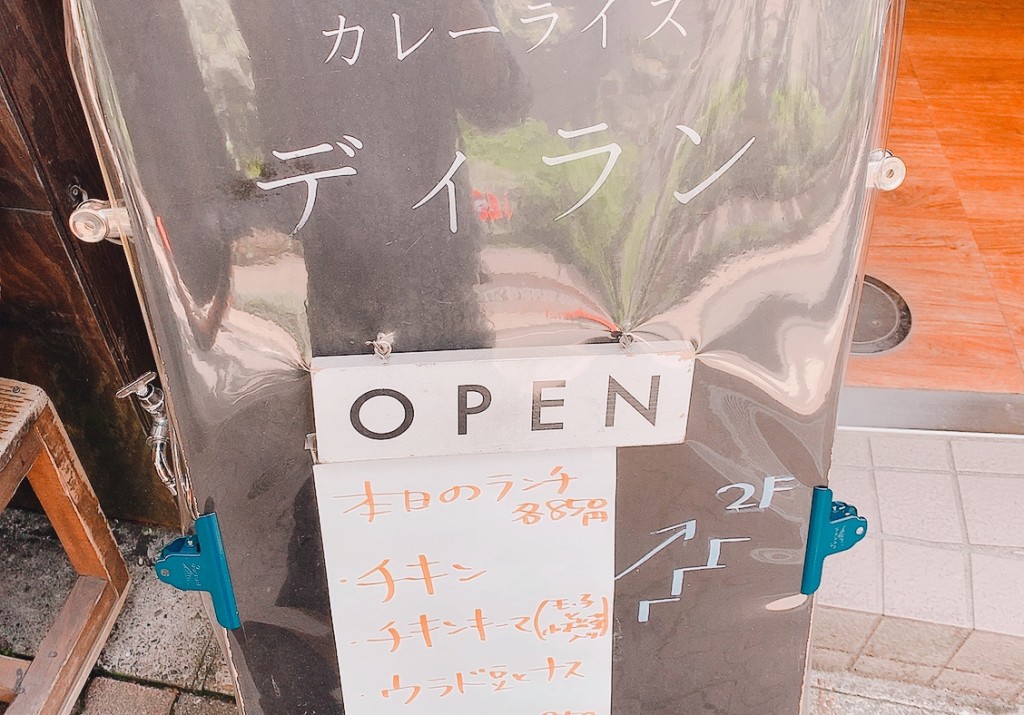 カレーライス
ディラン
OPEN
本日のランチ
各850円
2F
・チキン
・チキンキーマ
・ウラド豆とナス